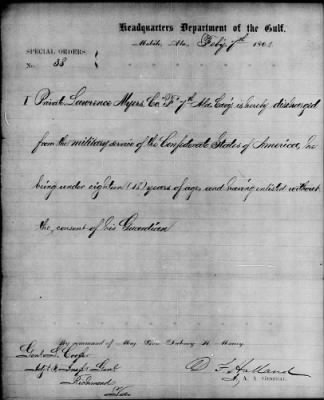 Headquarters Department of the Gulf.
Mobile, Ala. Feby 7th 186
SPECIAL ORDERS:
No. 38
I Privat Lawrence Myers Co "F" 7th Ala Cavy is hereby discharged
from the military service of the Confederate States of America, he
being under eighteen (18) years of age, and having enlisted without
the consent of his Guardian
By command of Maj Genl Dabney H. Maury
Genl S. Cooper
Adjt & Insp Genl
Richmond
Va
D. F. Holland
A. A. GENERAL.